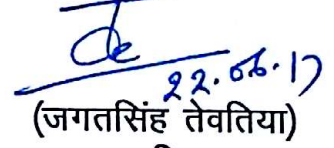 22.06.17
(जगतसिंह तेवतिया)